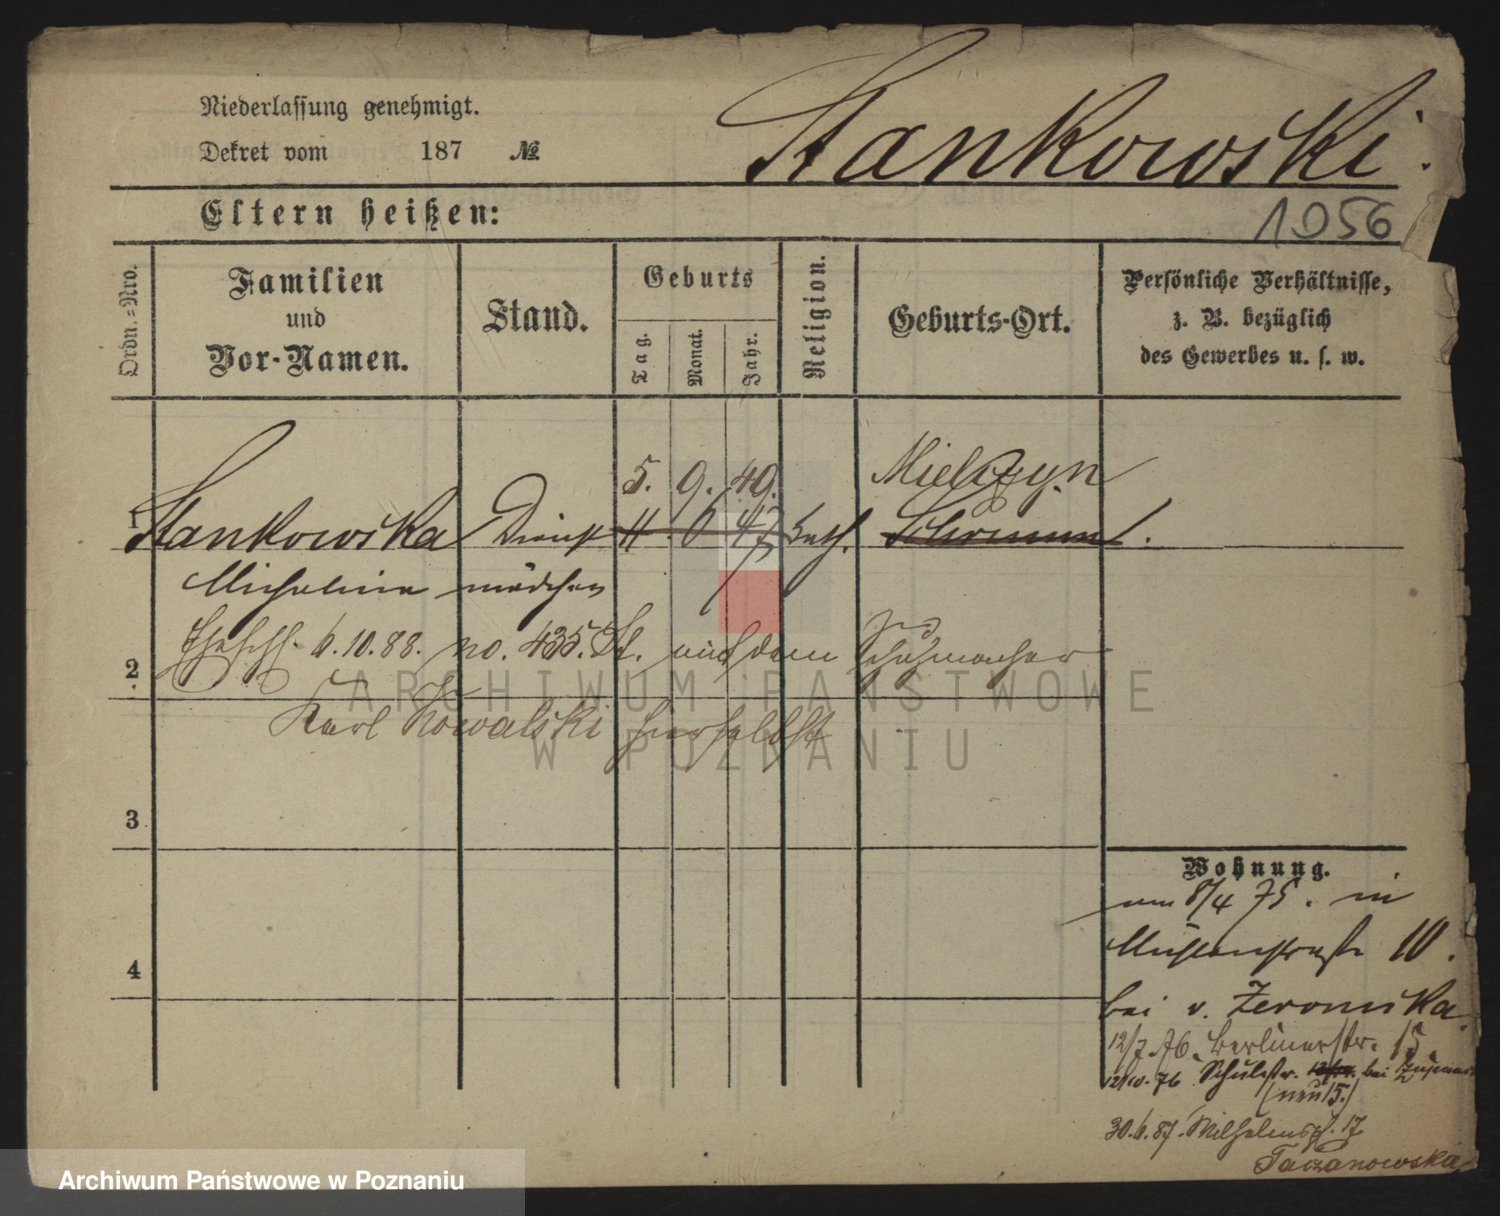 Niederlassung genehmigt.
Dekret vom 187 №
Stankowski.
Eltern heißen:
1056
Ordn.-Nro.
Familien
und
Vor-Namen.
Stand.
Geburts
Tag.
Monat.
Jahr.
Religion.
Geburts-Ort.
Persönliche Verhältnisse,
z. B. bezüglich
des Gewerbes u. s. w.
5. 9. 49. Mielczyn
1 Stankowska Dienst 11. 47 kath. Schrimm.
Michalina mädchen
Ehesch. 6.10.88. no. 435. St. mit dem Schuhmacher
2
Karl Kowalski hierselbst
3
4
Wohnung.
am 8/4 75. in
Mühlenstraße 10.
bei v. Zeromska.
12/7.76. Berlinerstr. 15.
12/10.76 Schulstr. bei
(neu 15.)
30.6.87. Wilhelmspl. 17
Taczanowska
ARCHIWUM PAŃSTWOWE
W POZNANIU
Archiwum Państwowe w Poznaniu